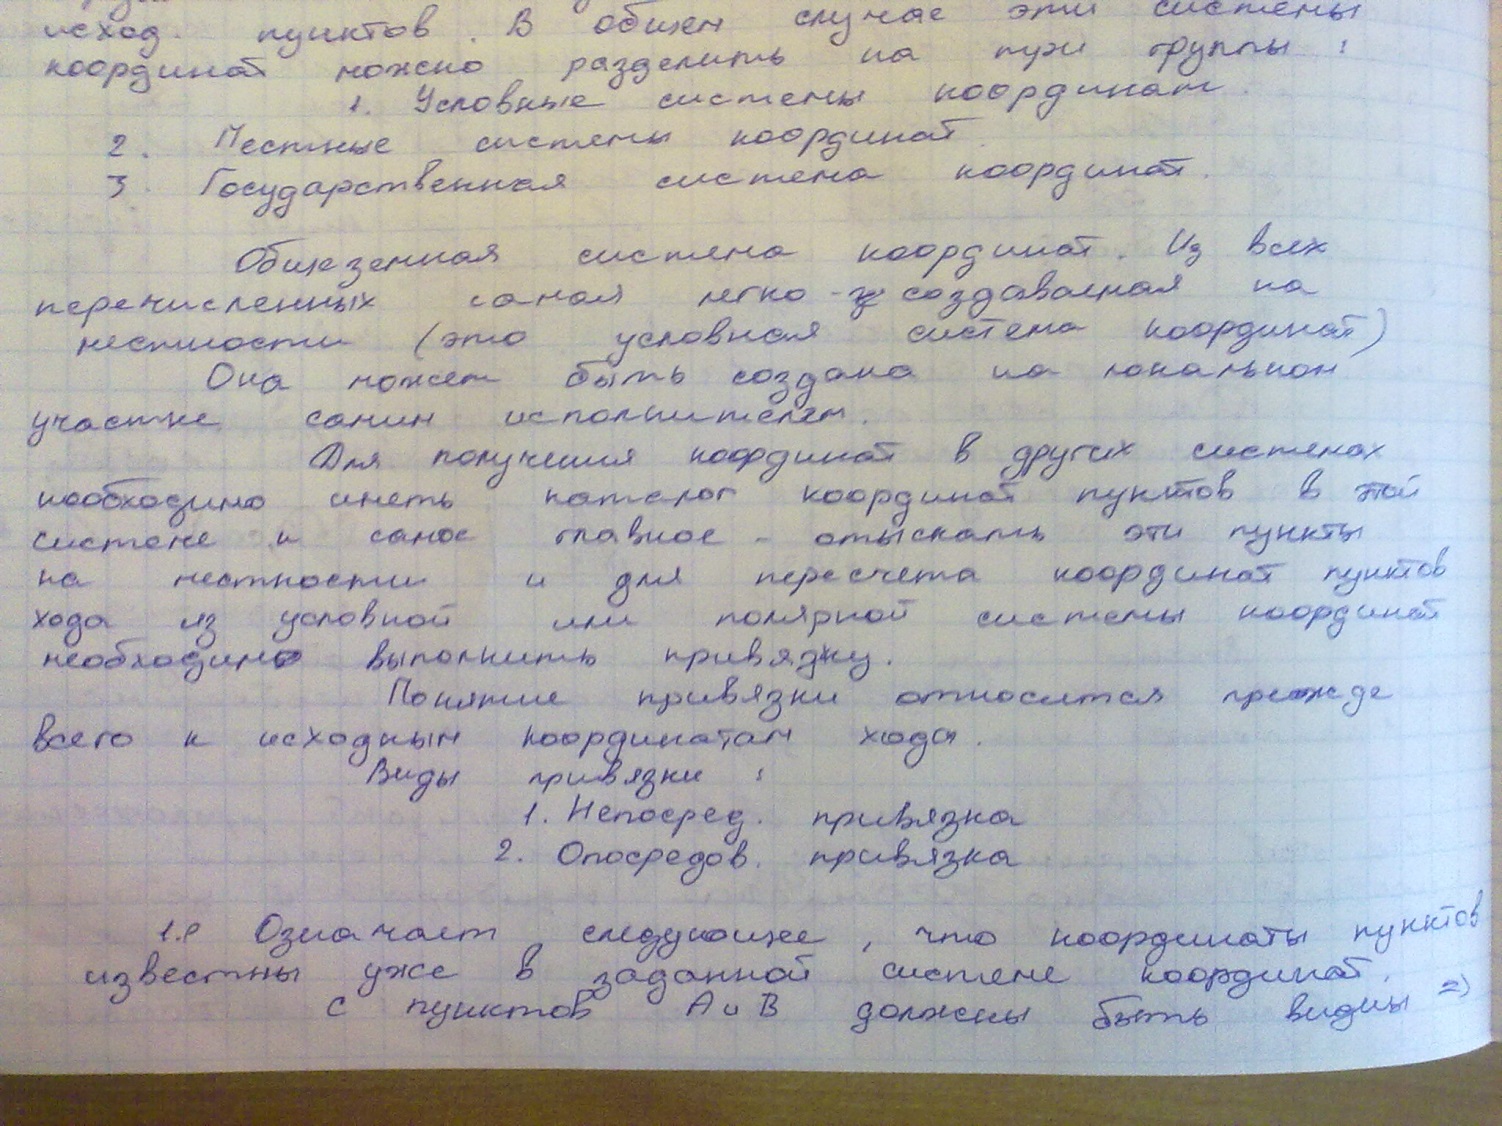 исход. пунктов. В общем случае эти системы
координат можно разделить на три группы:
1. Условные системы координат.
2. Местные системы координат.
3. Государственная система координат.
Общеземная система координат. Из всех
перечисленных самая легко - создаваемая на
местности (это условная система координат)
Она может быть создана на локальном
участке самим исполнителем.
Для получения координат в других системах
необходимо иметь каталог координат пунктов в этой
системе и самое главное - отыскать эти пункты
на местности и для пересчета координат пунктов
хода из условной или полярной системы координат
необходимо выполнить привязку.
Понятие привязки относится прежде
всего к исходным координатам хода.
Виды привязки:
1. Непосред. привязка
2. Опосредов. привязка
1. Означает следующее, что координаты пунктов
известны уже в заданной системе координат.
С пунктов А и В должны быть видны =>